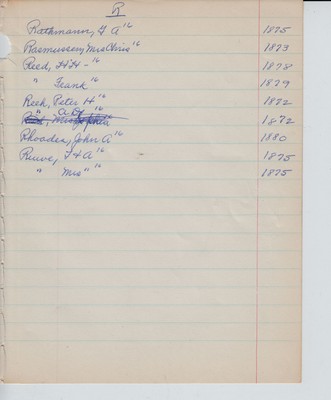 R
Rathmann, F A ¹⁶ 1875
Rasmussen, Mrs Chris ¹⁶ 1873
Reed, H H - ¹⁶ 1878
" Frank ¹⁶ 1879
Reek, Peter H ¹⁶ 1872
" A D ¹⁶ 1872
Rhoades, John A ¹⁶ 1880
Ruwe, F H A ¹⁶ 1875
" Mrs " ¹⁶ 1875